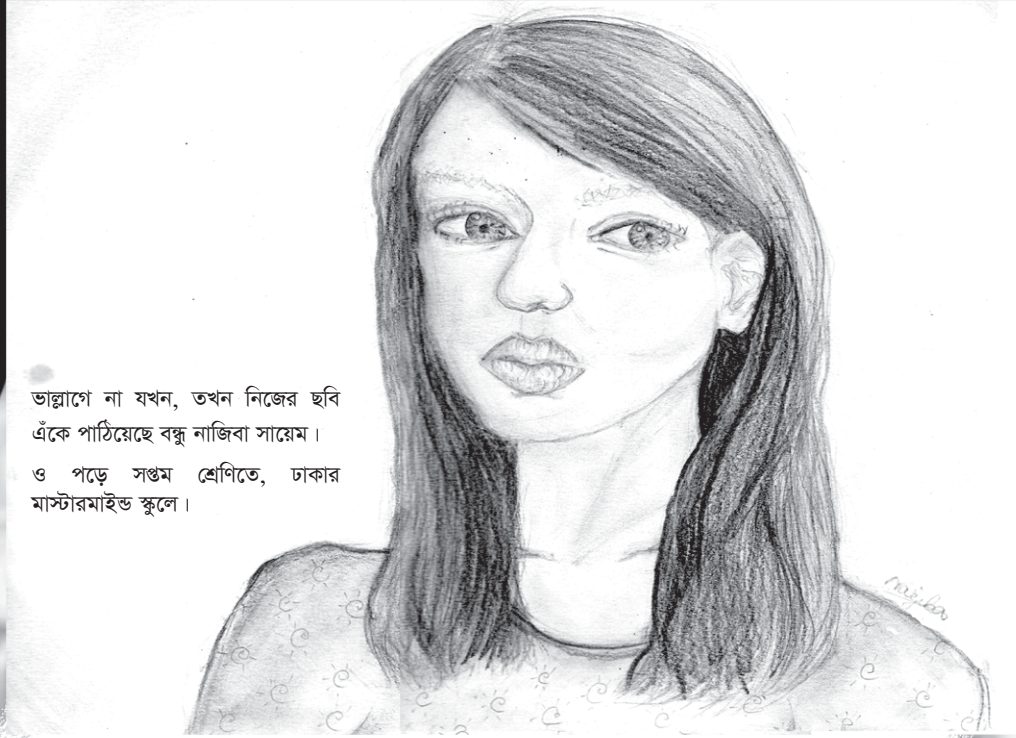 ভাল্লাগে না যখন, তখন নিজের ছবি
এঁকে পাঠিয়েছে বন্ধু নাজিবা সায়েম।
ও পড়ে সপ্তম শ্রেণিতে, ঢাকার
মাস্টারমাইন্ড স্কুলে।
najiba